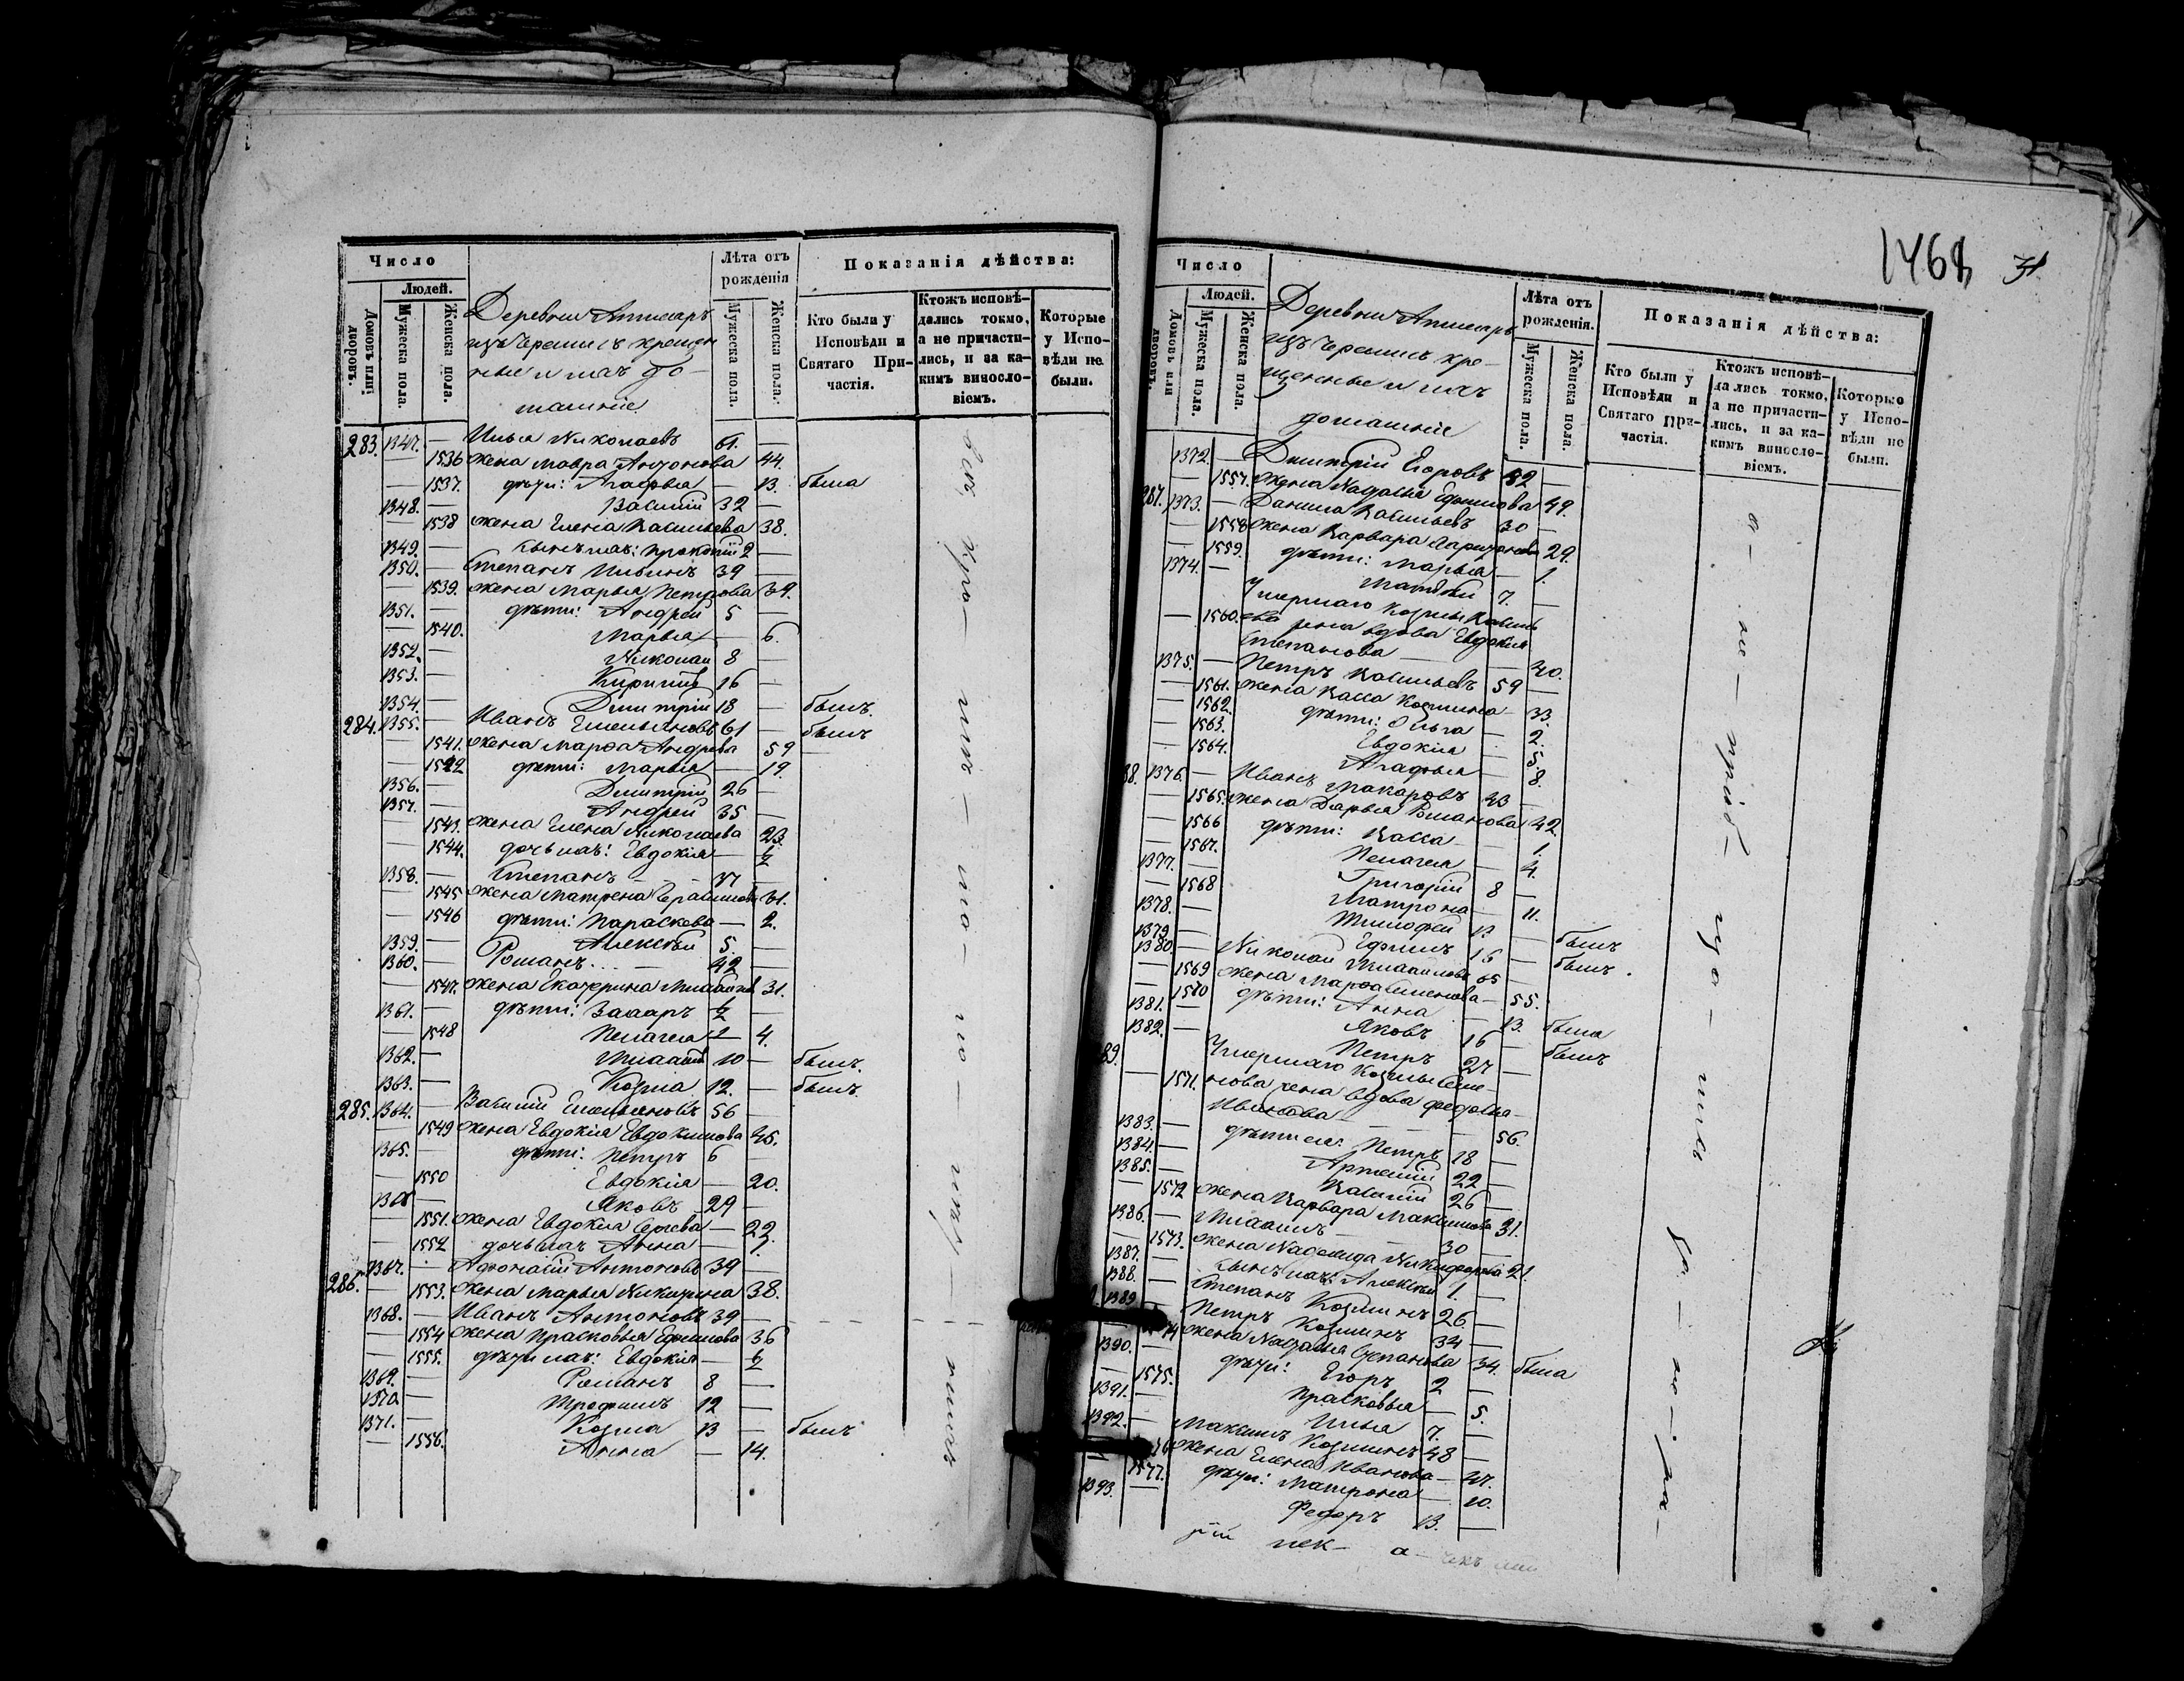 Число
Людей.
Домовъ или дворовъ.
Мужеска пола.
Женска пола.
Деревни
изъ Черемисъ крещен
ные и ихъ до-
машніе
Лѣта отъ рожденія
Мужеска пола.
Женска пола.
Показанія дѣйства:
Кто были у Исповѣди и Святаго Причастія.
Ктожъ исповѣдались токмо, а не причастились, и за какимъ винословіемъ.
Которые у Исповѣди не были.
283. 1347. — Илья Николаевъ 61. —
— 1536 жена Мавра Антонова 44.
— 1537. дѣти: Агафья — 13. была
1348. — Василій 32 —
— 1538 жена Елена Васильева 38.
1349. — сынъ ихъ: Прокопій 2 —
1350. — Степанъ Ильинъ 39 —
— 1539. жена Марья Петрова 39.
1351. — дѣти: Андрей 5 —
— 1540. Марья — 6.
1352. — Николай 8 —
1353. — Кирилъ 16 —
1354. — Дмитрій 18 — былъ.
284. 1355. — Иванъ Емельяновъ 61 — былъ
— 1541. жена Марфа Андрева 59
— 1542 дѣти: Марья — 19.
1356. — Дмитрій 26 —
1357. — Андрей 35 —
— 1543. жена Елена Николаева 23.
— 1544. дочь ихъ: Евдокія — ½
1358. — Степанъ — 37 —
— 1545 жена Матрена 31.
— 1546 дѣти: Параскева — 2.
1359. — Алексѣй 5. —
1360. — Романъ — 42 —
— 1547. жена Екатерина 31.
1361. — дѣти: Захаръ ½ —
— 1548 Пелагея — 4.
1362. — Михаилъ 10 — былъ.
1363. — Козма 12. — былъ.
285. 1364. — Василій Емельяновъ 56 —
— 1549 жена Евдокія Евдокимова 45.
1365. — дѣти: Петръ 6 —
— 1550 Евдокія — 20.
1366 — Яковъ 29 —
— 1551. жена Евдокія Сергѣева — 22.
— 1552 дочь ихъ Анна — 1.
286. 1367. — Афонасій Антоновъ 39 —
— 1553. жена Марья Никитина 38.
1368. — Иванъ Антоновъ 39 —
— 1554 жена Прасковья Ефимова 36
— 1555. дѣти ихъ: Евдокія — ½
1369. — Романъ 8 —
1370. — Трофимъ 12 —
1371. — Козма 13 — былъ
— 1556. Анна — 14.
1468
31
Число
Людей.
Домовъ или дворовъ.
Мужеска пола.
Женска пола.
Деревни
изъ Черемисъ кре-
щенные и ихъ
домашніе
Лѣта отъ рожденія.
Мужеска пола.
Женска пола.
Показанія дѣйства:
Кто были у Исповѣди и Святаго Причастія.
Ктожъ исповѣдались токмо, а не причастились, и за какимъ винословіемъ.
Которые у Исповѣди не были.
1372. — Дмитрій Егоровъ 52 —
— 1557. жена Наталья Ефимова 49.
287. 1373. — Данила Васильевъ 30 —
— 1558 жена Варвара 29.
— 1559. дѣти: Марья — 1.
1374. — Матвѣй 7. —
Умершаго Козмы Василь
— 1560. ева жена вдова Евдокія
Степанова — 40.
1375. — Петръ Васильевъ 59 —
— 1561. жена Васса Козмина — 33.
— 1562. дѣти: Ольга — 2.
— 1563. Евдокія — 5.
— 1564. Агафья — 8.
88. 1376. — Иванъ Макаровъ 43 —
— 1565. жена Дарья Романова 42
— 1566 дѣти: Васса — 1.
— 1567. Пелагея — 4.
1377. — Григорій 8 —
— 1568 Матрона — 11.
1378. — Тимофей 13. — былъ
1379. — Ефимъ 16 — былъ.
1380 — Николай Михаиловъ 65 —
— 1569 жена Марфа Семенова — 55.
— 1570 дѣти: Анна — 13. была
1381. — Яковъ 16 — былъ
1382. — Петръ 27 —
89. Умершаго Козмы Семе-
— 1571. нова жена вдова Федосья
Иванова — 56.
1383. — дѣти ея: Петръ 18 —
1384. — Артемій 22 —
1385. — Василій 26 —
— 1572 жена Варвара Максимова 31.
1386. — Михаилъ — 30 —
— 1573. жена Никифорова 21.
1387. — сынъ ихъ: Алексѣй 1. —
1388. — Степанъ Козминъ 26. —
1389 Петръ Козминъ 34 —
жена Наталья Степанова 34. была
1390. — дѣти: Егоръ 2 —
1575. Прасковья — 5.
1391. — Илья 7. —
1392. — Максимъ Козминъ 48 —
жена Елена Иванова — 47.
1577. дѣти: Матрона — 10.
1393. — Федоръ 13. —